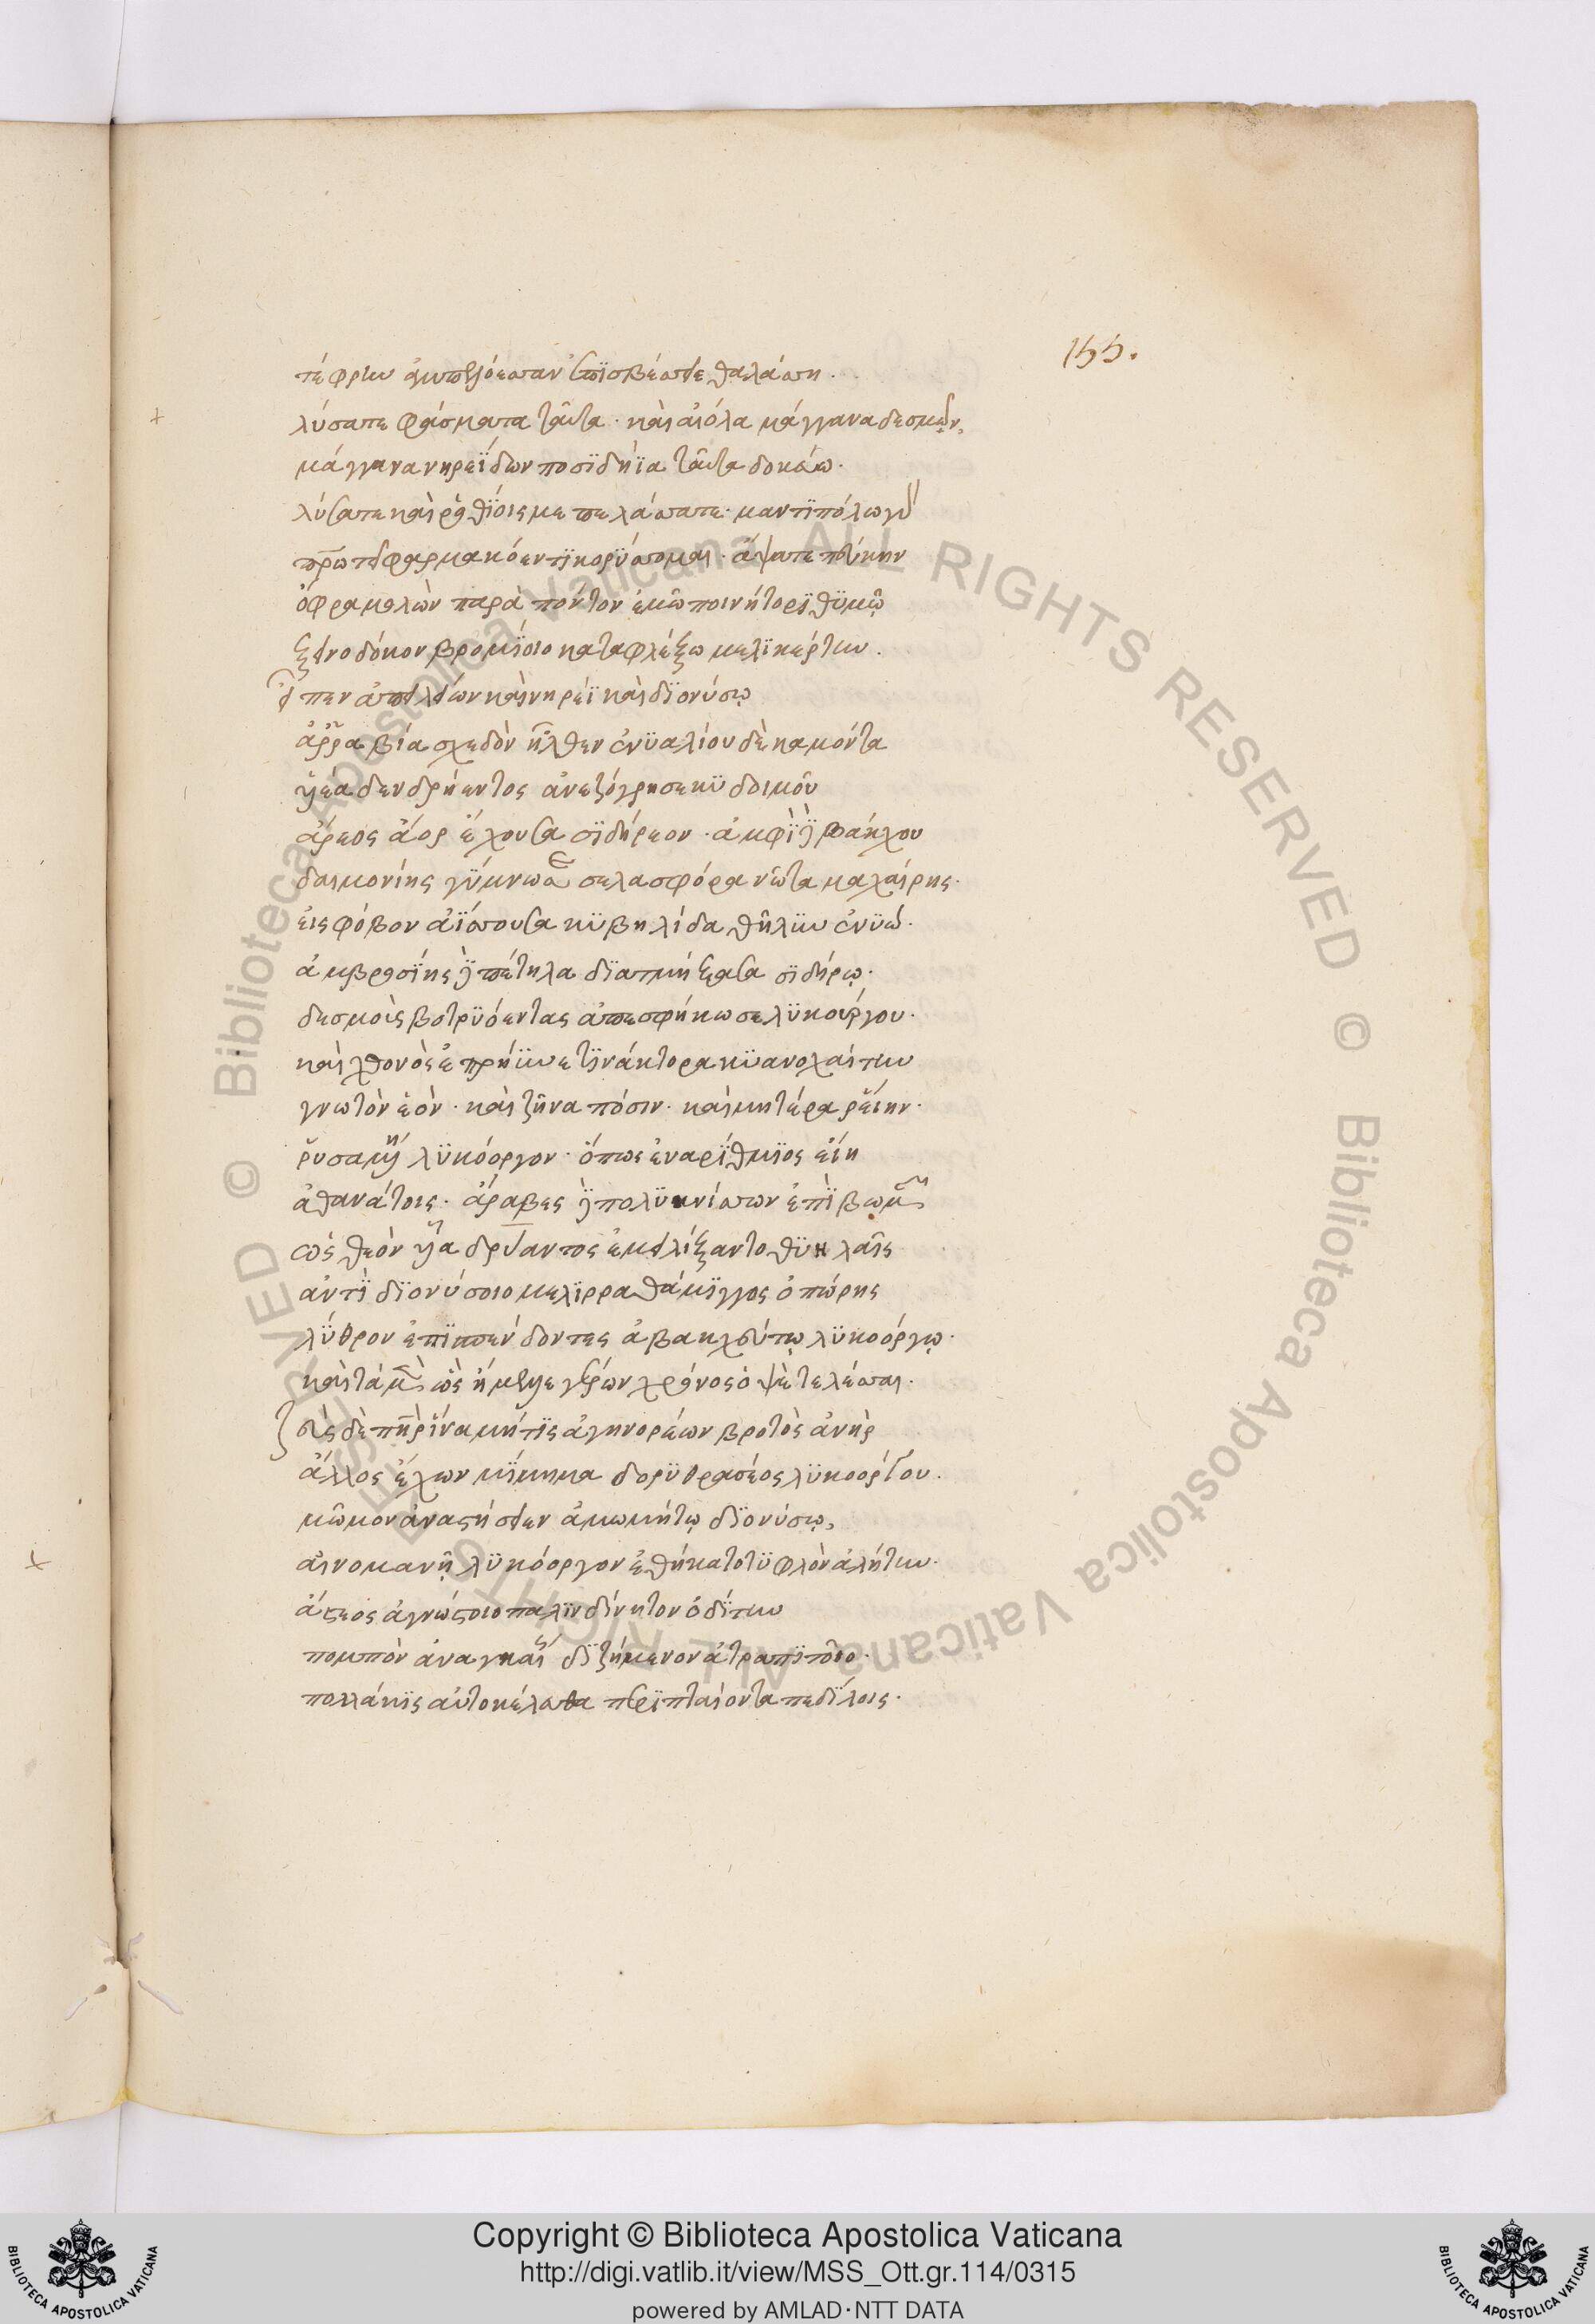 155.
τέφρην ἐπισβέσσατε θαλάσση.
λύσατε φάσματα ταῦτα· καὶ αἰόλα μάγγανα δεσμῶν,
μάγγανα νηρεΐδων ποσιδήϊα ταῦτα δοκεύω.
λύσατε καὶ ῥοθίοις με πελάσσατε· μαντιπόλω γὰρ
πρωτεῖ φαρμακόεντι κορύσσομαι· ἅψατε πεύκην
ὄφρα μολὼν παρὰ πόντον ἐμῶ ποινήτορι θυμῷ
ξεινοδόκον βρομίοιο καταφλέξω μελικέρτην.
εἶπεν ἀπειλείων καὶ νηρέϊ καὶ διονύσῳ
ἀρραβία σχεδὸν ἦλθεν ἐνυαλίου δὲ καμόντα
υἷέα δενδρήεντος ἀνεζώγρησε κυδοιμοῦ
ἄρεος ἄορ ἔχουσα σιδήρεον· ἀμφὶ δὲ βάκχου
δαιμονίης γύμνωσε σελασφόρα νῶτα μαχαίρης.
εἰς φόβον ἀΐσσουσα κυβηλίδα θῆλυν ἐνυώ.
ἀμβροσίης δὲ πέτηλα διατμήξασα σιδήρῳ.
δεσμοὶς βοτρυόεντας ἀπεσφήκωσε λυκούργου.
καὶ χθονὸς ἐπρήϋνε τινάκτορα κυανοχαίτην
γνωτὸν ἑόν· καὶ ζῆνα πόσιν· καὶ μητέρα ῥείην.
ῥυσαμένη λυκόοργον· ὅπως ἐναρίθμιος εἴη
ἀθανάτοις· ἄραβες δὲ πολυκνίσσων ἐπὶ βωμῶν
ὡς θεὸν υἷα δρύαντος ἐμειλίξαντο θυηλαῖς
ἀντὶ διονύσοιο μελιρραθάμιγγος ὀπώρης
λύθρον ἐπισπένδοντες ἀβακχεύτῳ λυκοόργῳ.
καὶ τὰ μὲν ὣς ἤμελλε γέρων χρόνος ὀψὲ τελέσσαι.
ζεὺς δὲ πατὴρ ἵνα μήτις ἀγηνορέων βροτὸς ἀνὴρ
ἄλλος ἔχων μίμημα δορυθρασέος λυκοόργου.
μῶμον ἀναστήσειεν ἀμωμήτῳ διονύσῳ,
αἰνομανῆ λυκόοργον ἐθήκατο τυφλὸν ἀλήτην.
ἄστεος ἀγνώστοιο παλινδίνητον ὁδίτην
πομπὸν ἀναγκαῖον διζήμενον ἀτραπιτοῖο.
πολλάκις αὐτοκέλευθα περιπταίοντα πεδίλοις.
Copyright © Biblioteca Apostolica Vaticana
http://digi.vatlib.it/view/MSS_Ott.gr.114/0315
powered by AMLAD·NTT DATA